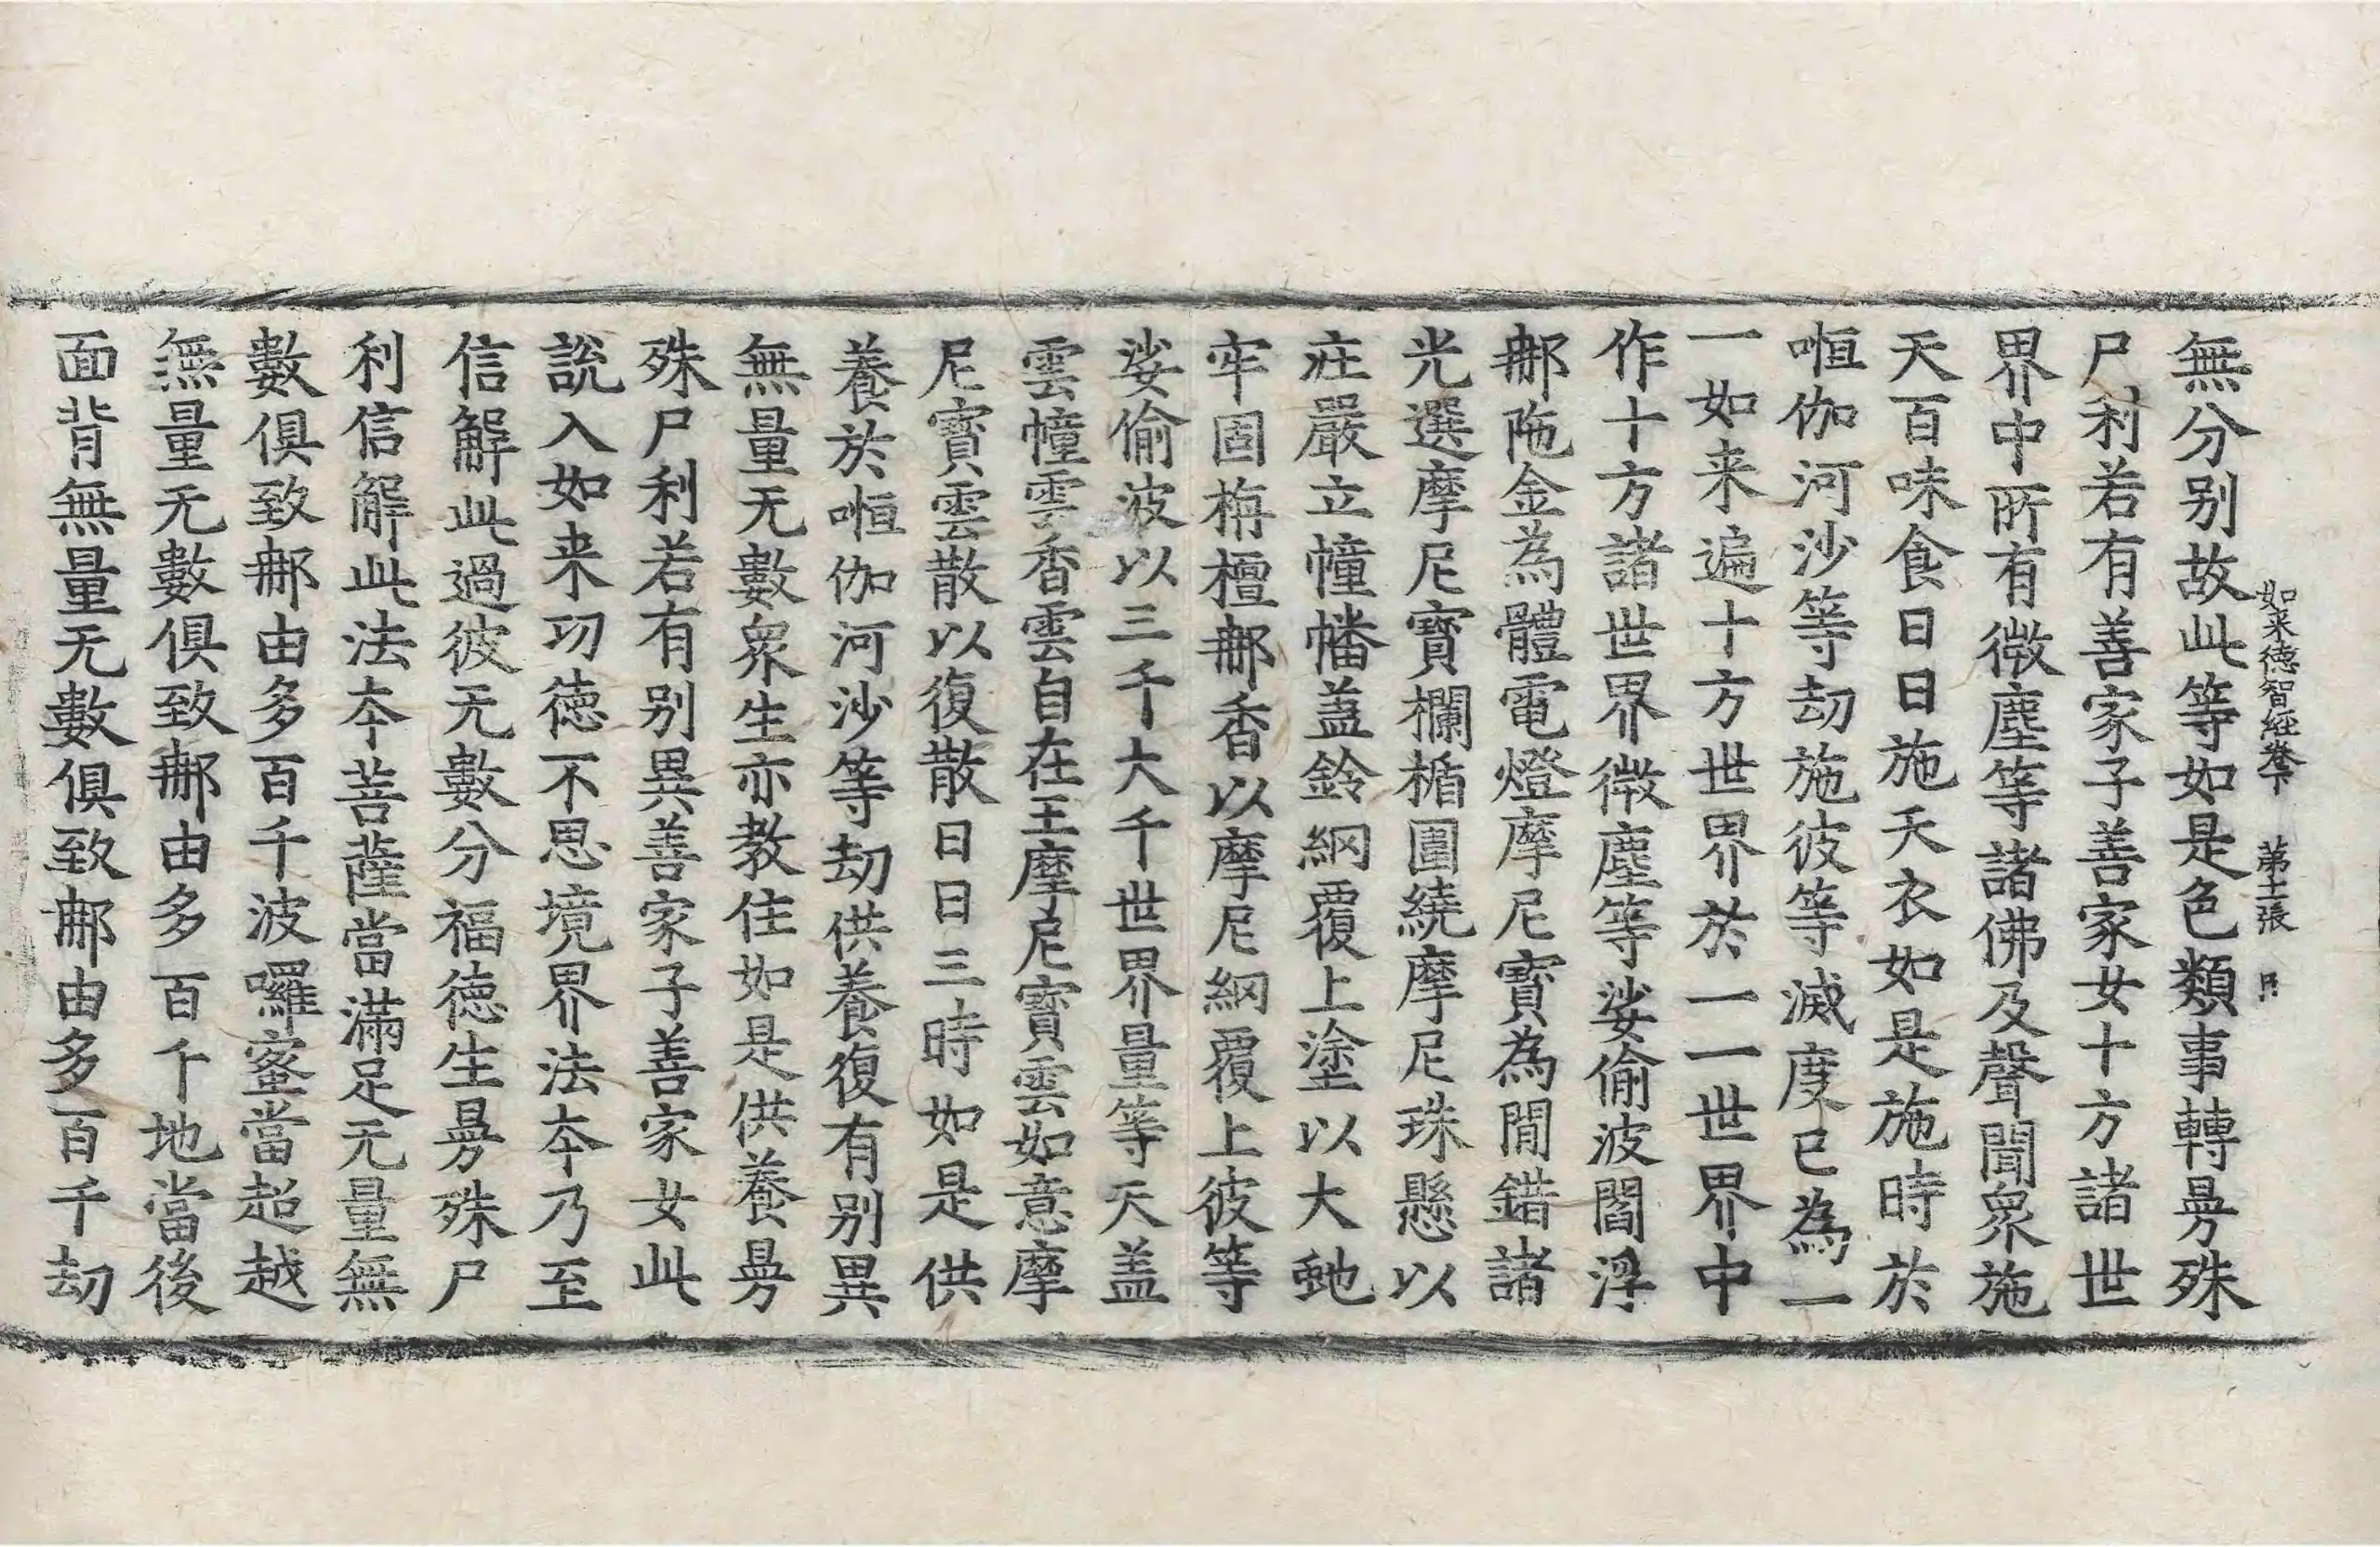 無分别故此等如是色類事轉昮殊
如来德智經卷下 第十二張 目
尸利若有善家子善家女十方諸世
界中所有微塵等諸佛及聲聞衆施
天百味食日日施天衣如是施時於
恒伽河沙等劫施彼等滅度已為一
一如来遍十方世界於一一世界中
作十方諸世界微塵等娑偷波閻浮
那陁金為體電燈摩尼寶為間錯諸
光選摩尼寶欄楯圍繞摩尼珠懸以
莊嚴立幢幡盖鈴網覆上塗以大虵
牢固栴檀那香以摩尼網覆上彼等
娑偷波以三千大千世界量等天盖
雲幢雲香雲自在王摩尼寶雲如意摩
尼寶雲散以復散日日三時如是供
養於恒伽河沙等劫供養復有别異
無量无數衆生亦教住如是供養昮
殊尸利若有别異善家子善家女此
說入如来功德不思境界法夲乃至
信解此過彼无數分福德生昮殊尸
利信解此法夲菩薩當滿足无量無
數俱致那由多百千波囉蜜當超越
無量无數俱致那由多百千地當後
面背無量无數俱致那由多百千劫